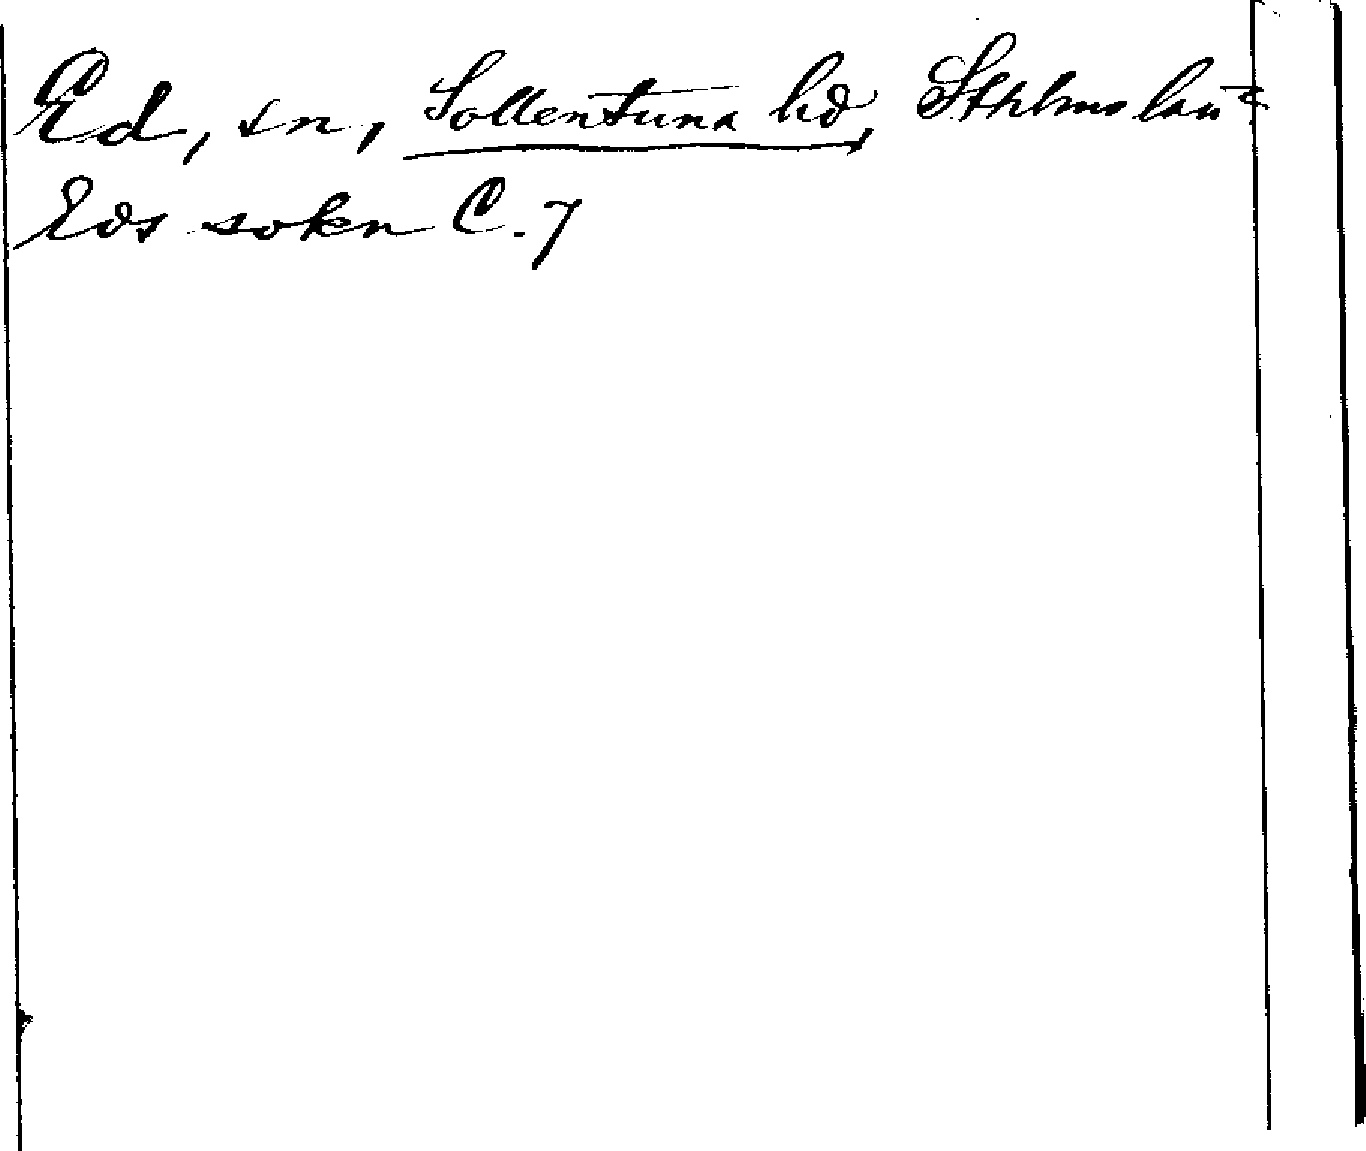 Ed, sn, Sollentuna hd, Sthlms län
Eds sokn C. 7